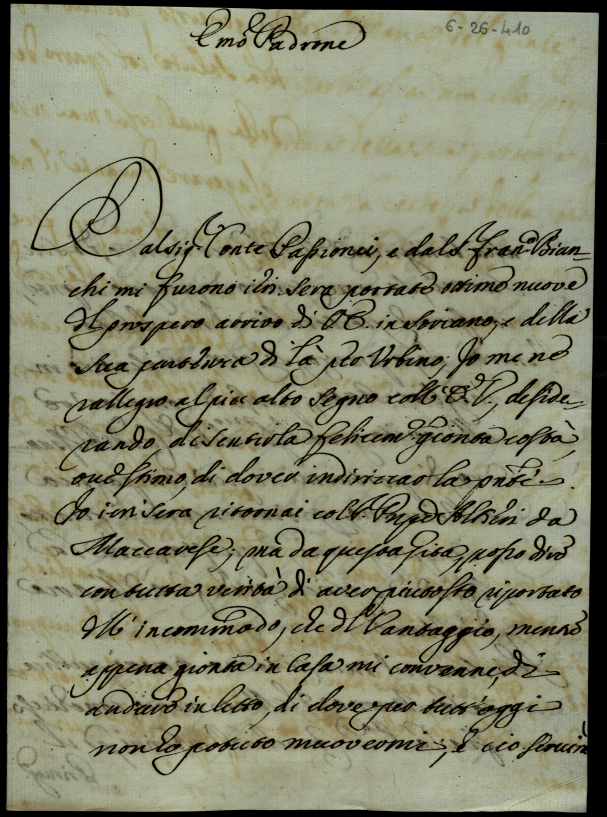 6-26-410
Emo Padrone
Dal sigr Conte Passionei, e dal Sr Franco Bian=
chi mi furono ieri sera portate ottime nuove
del prospero arrivo di V.E. in Soriano, e della
sua partenza di là per Urbino; Io me ne
rallegro al piu alto segno coll' E.V., deside=
rando, di sentirla felicemte gionta costà,
ove stimo, di dover indirizzar la pnte.
Io ieri sera ritornai coll' Altieri da
Maccarese; ma da questa gita, posso dire
con tutta verità di aver piutosto riportato
dell' incommodo, che del Vantaggio, mentre
appena gionta in Casa mi convenne, di
andare in letto, di dove per tutt'oggi
non ho potuto muovermi; e ciò servirà